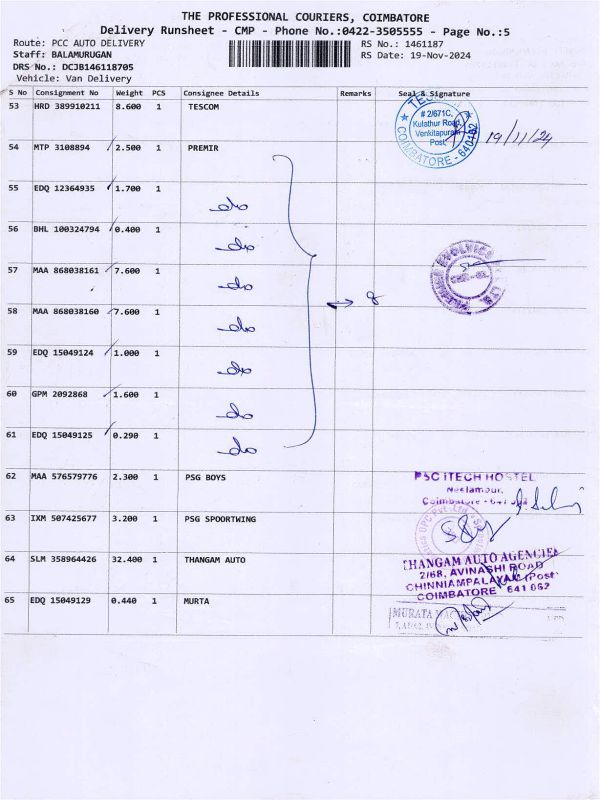 THE PROFESSIONAL COURIERS, COIMBATORE
Delivery Runsheet - CMP - Phone No.:0422-3505555 - Page No.:5
Route: PCC AUTO DELIVERY RS No.: 1461187
Staff: BALAMURUGAN RS Date: 19-Nov-2024
DRS No.: DCJB146118705
Vehicle: Van Delivery
S No Consignment No Weight PCS Consignee Details Remarks Seal & Signature
53 HRD 389910211 8.600 1 TESCOM
# 2/671C,
Kulathur Road,
Venkitapuram
Post,
COIMBATORE - 640162
19/11/24
54 MTP 3108894 2.500 1 PREMIR
55 EDQ 12364935 1.700 1 do
56 BHL 100324794 0.400 1 do
57 MAA 868038161 7.600 1 do
8
58 MAA 868038160 7.600 1 do
59 EDQ 15049124 1.000 1 do
60 GPM 2092868 1.600 1 do
61 EDQ 15049125 0.290 1 do
62 MAA 576579776 2.300 1 PSG BOYS
PSG ITECH HOSTEL
Neelambur,
Coimbatore - 641 062
63 IXM 507425677 3.200 1 PSG SPOORTWING
64 SLM 358964426 32.400 1 THANGAM AUTO
THANGAM AUTO AGENCIES
2/68, AVINASHI ROAD
CHINNIAMPALAYAM (Post)
COIMBATORE 641 062
65 EDQ 15049129 0.440 1 MURTA
MURATA